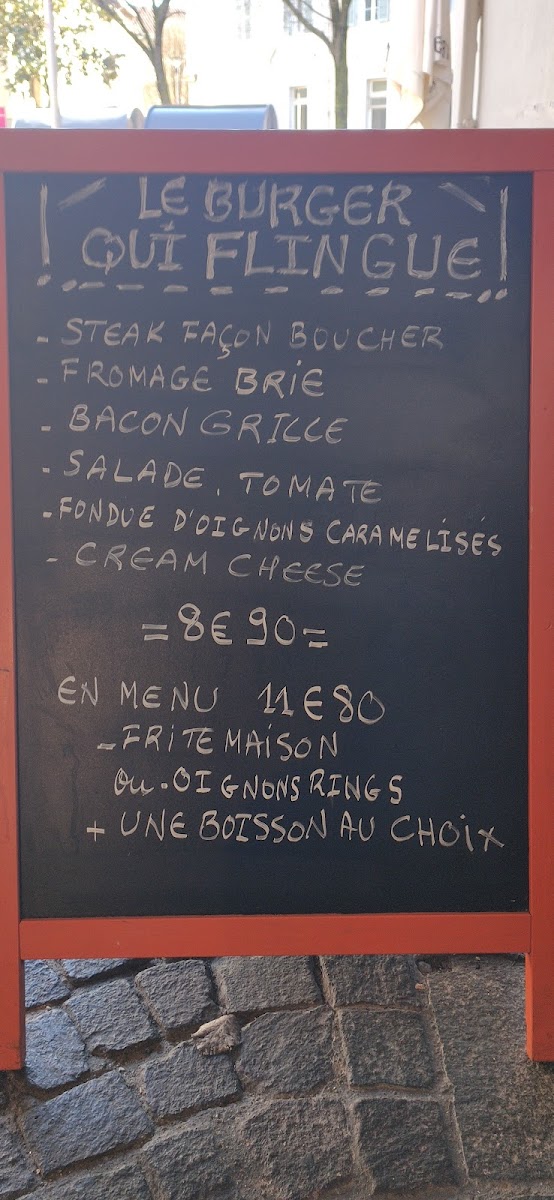 LE BURGER
QUI FLINGUE
- STEAK FAÇON BOUCHER
- FROMAGE BRIE
- BACON GRILLE
- SALADE, TOMATE
- FONDUE D'OIGNONS CARAMELISÉS
- CREAM CHEESE
= 8€90 =
EN MENU 11€80
- FRITE MAISON
ou - OIGNONS RINGS
+ UNE BOISSON AU CHOIX